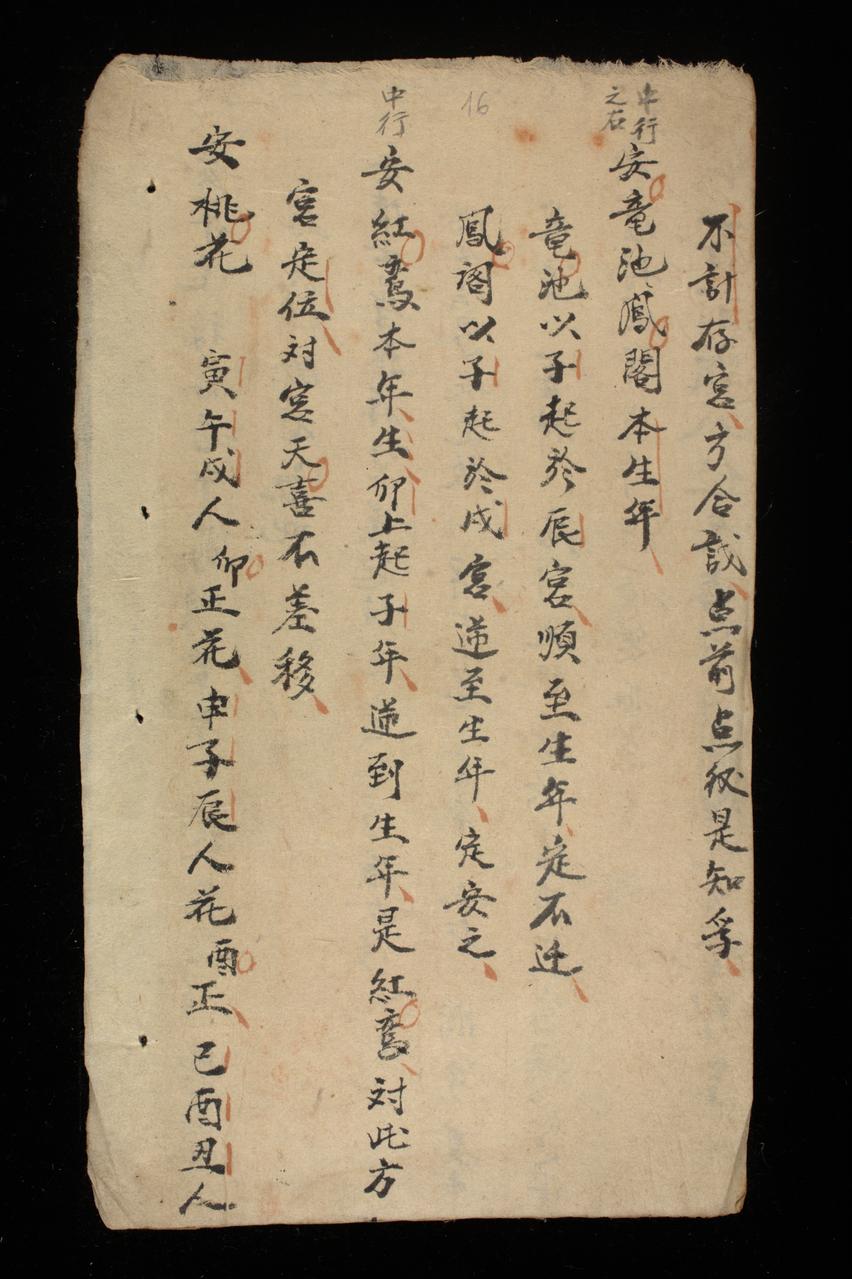 不計存宮方合誐点前点後是知孚
中行
之右
安竜池鳳閣本生年
竜池以子起於辰宮順至生年定不迁
16
鳳閣以子起於戌宮逆至生年定安之
中行
安紅鸾本年生卯上起子年逆到生年是紅鸾対此方
宮定位対宮天喜不差移
安桃花 寅午戌人卯正花申子辰人花酉正巳酉丑人